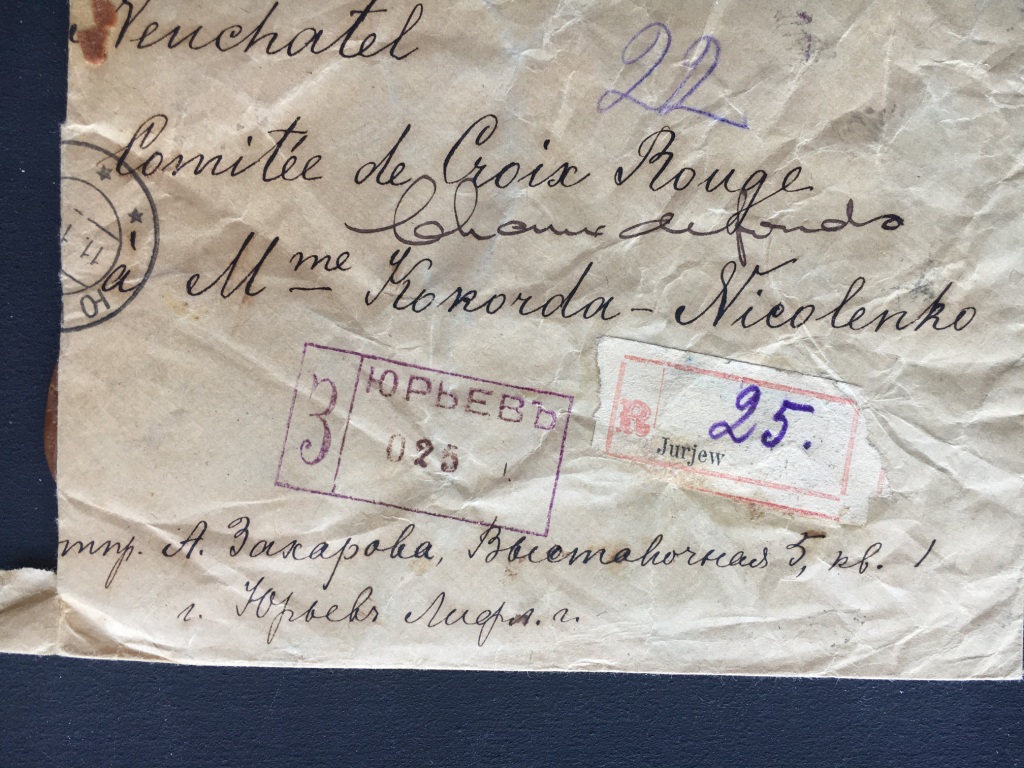 Neuchatel
22
Comitée de Croix Rouge
Chaux de fonds
à Mme Kokorda - Nicolenko
З ЮРЬЕВЪ
025
R Jurjew 25.
отпр. А. Захарова, Выставочная 5, кв. 1
г. Юрьевъ Лифл. г.